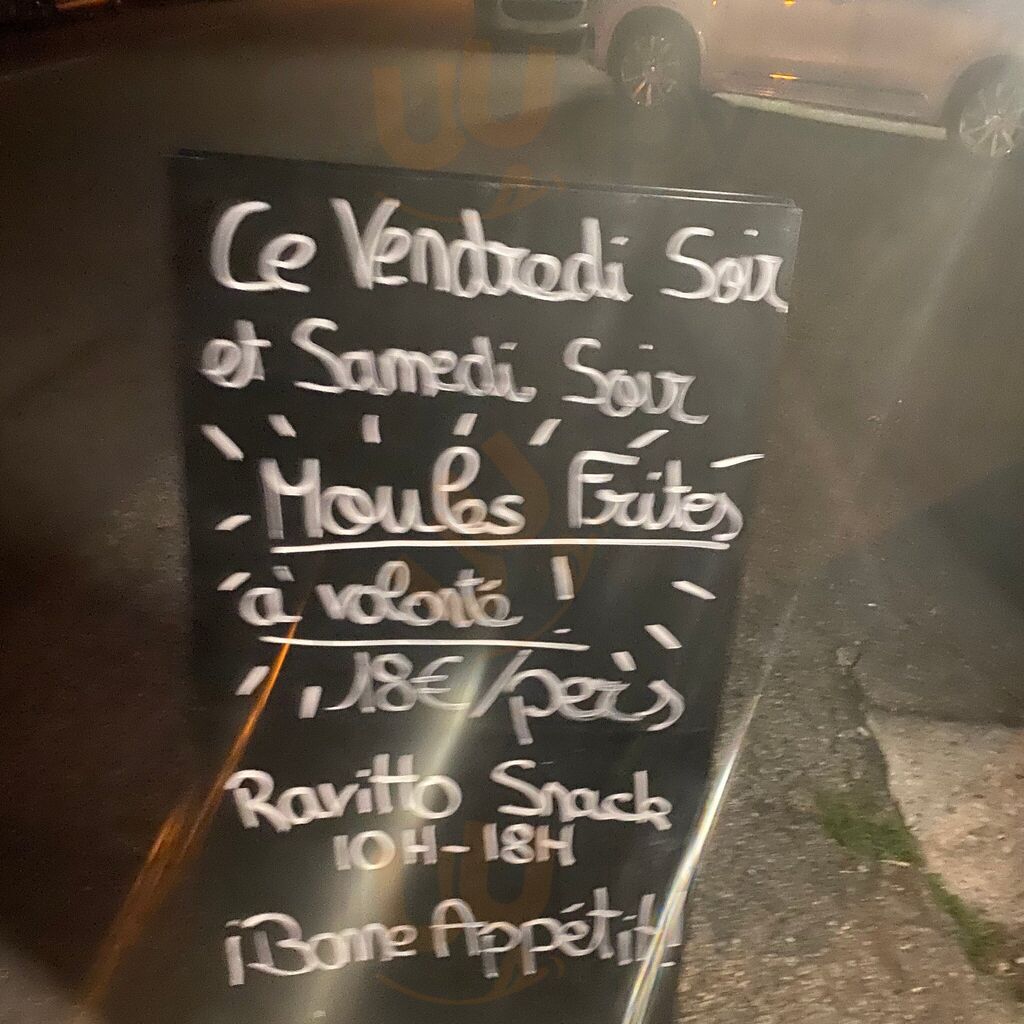 Ce Vendredi Soir
et Samedi Soir
Moules Frites
à volonté !
18€/pers
Ravitto Snack
10H-18H
¡Bonne Appétit!